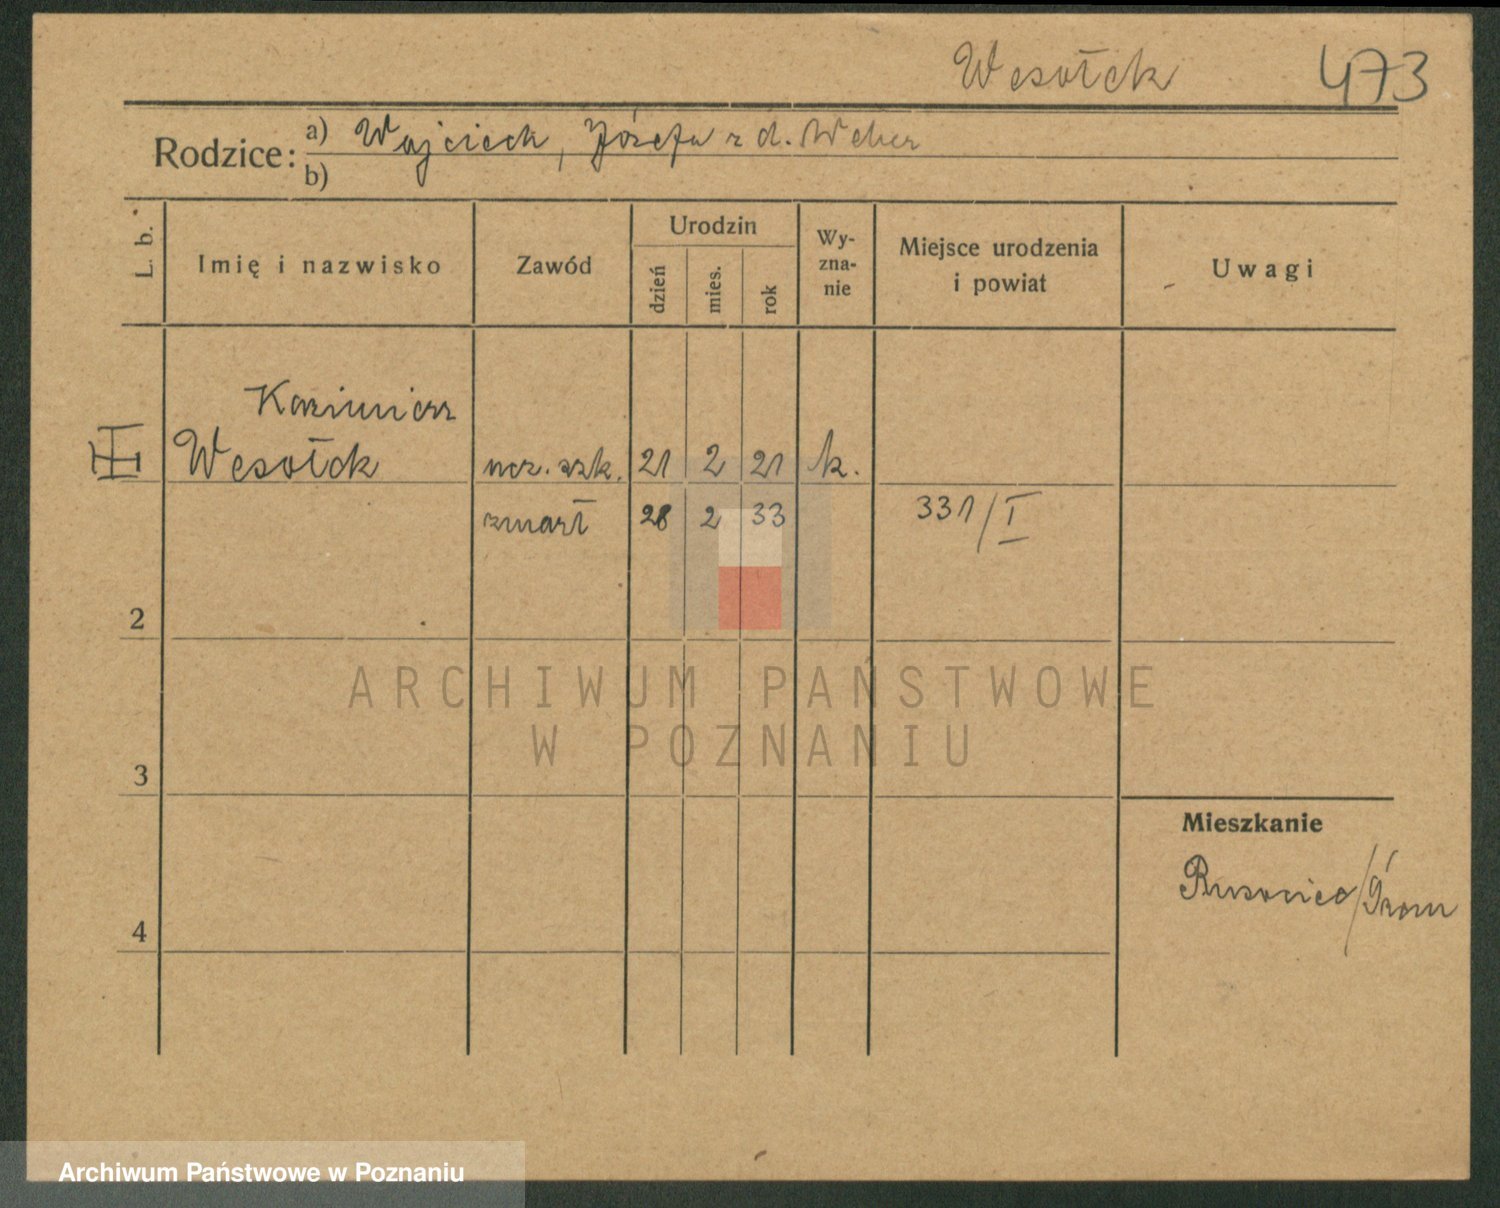 Wesołek 473
Rodzice: a) Wojciech, Józefa z d. Weber
b)
L. b. Imię i nazwisko Zawód Urodzin dzień mies. rok Wy-zna-nie Miejsce urodzenia i powiat Uwagi
Kazimierz
Wesołek ucz. szk. 21 2 21 k.
zmarł 28 2 33 331/I
2
ARCHIWUM PAŃSTWOWE
W POZNANIU
3
Mieszkanie
Rusociec/Śrem
4
Archiwum Państwowe w Poznaniu